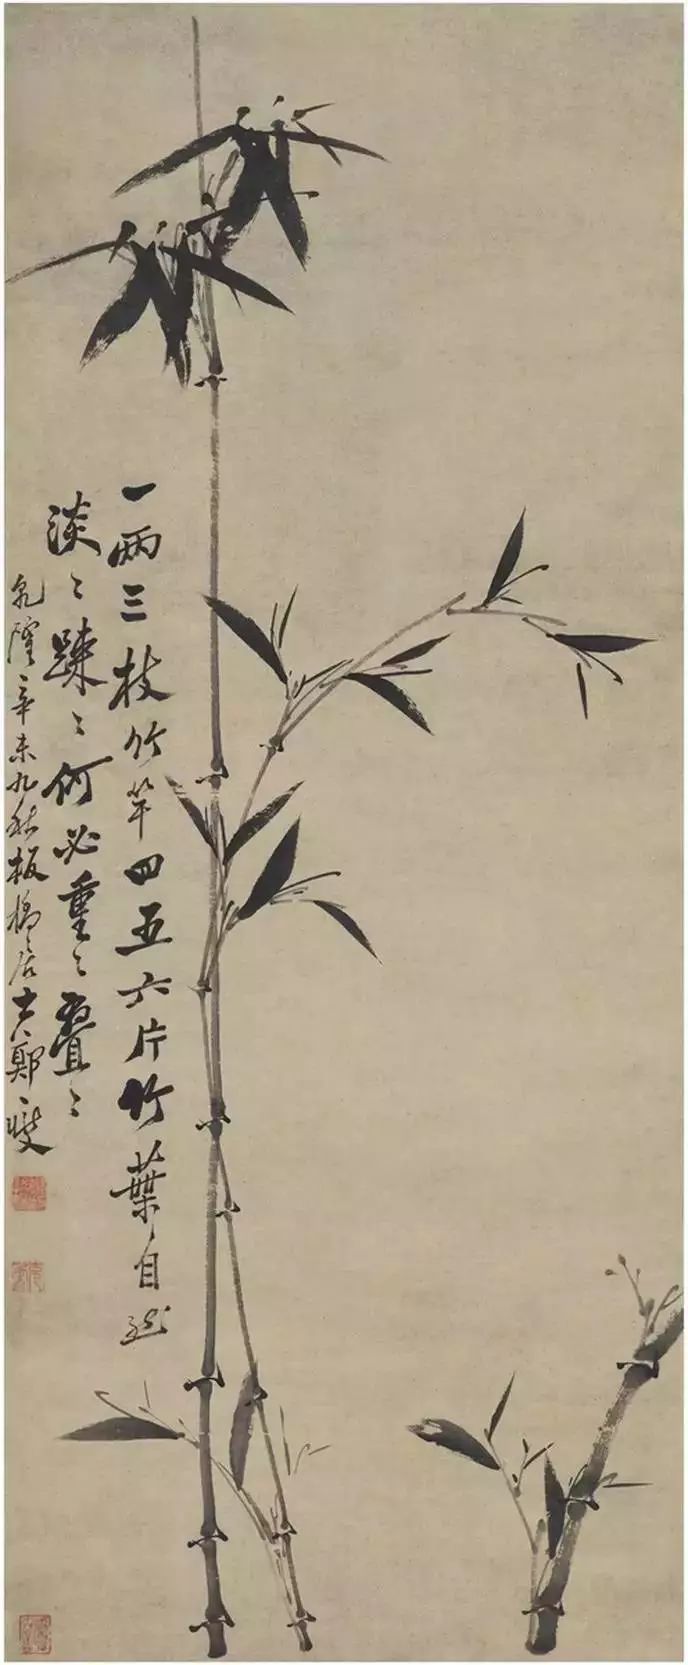 一两三枝竹竿四五六片竹葉自然
淡〻疎〻何必重〻疊〻
乾隆辛未九秋板橋居士鄭燮